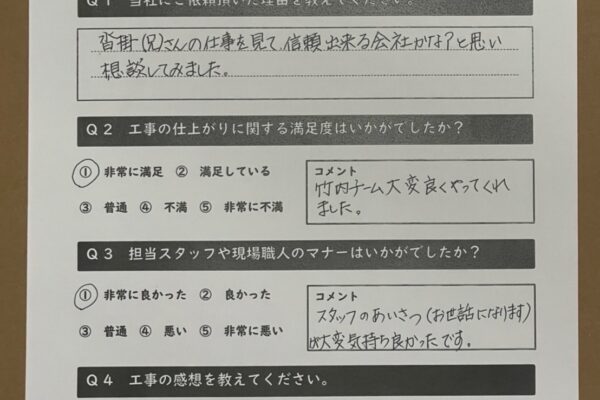 Q1 当社にご依頼頂いた理由を教えてください。
沓掛(兄)さんの仕事を見て、信頼出来る会社かな?と思い
相談してみました。
Q2 工事の仕上がりに関する満足度はいかがでしたか?
① 非常に満足 ② 満足している
③ 普通 ④ 不満 ⑤ 非常に不満
コメント
竹内チーム大変良くやってくれ
ました。
Q3 担当スタッフや現場職人のマナーはいかがでしたか?
① 非常に良かった ② 良かった
③ 普通 ④ 悪い ⑤ 非常に悪い
コメント
スタッフのあいさつ(お世話になります)
が大変気持ち良かったです。
Q4 工事の感想を教えてください。